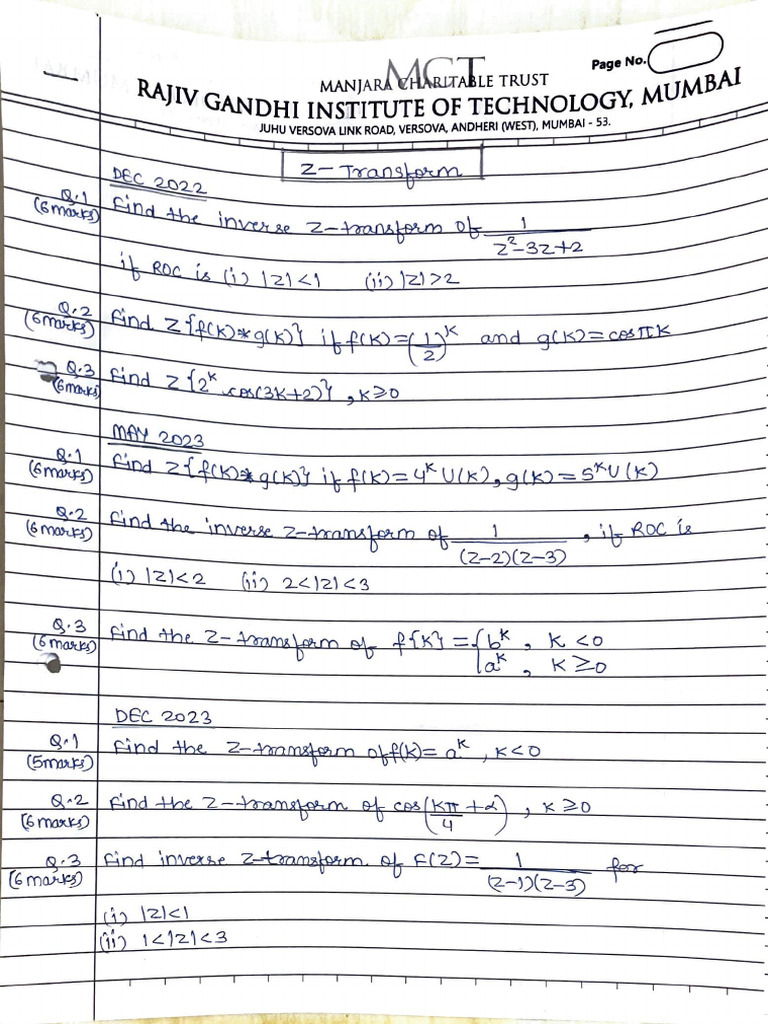 MCT
MANJARA CHARITABLE TRUST
Page No.
RAJIV GANDHI INSTITUTE OF TECHNOLOGY, MUMBAI
JUHU VERSOVA LINK ROAD, VERSOVA, ANDHERI (WEST), MUMBAI - 53.
Z-Transform
DEC 2022
Q.1 (6 marks) Find the inverse Z-transform of 1/(z²-3z+2)
if ROC is (i) |z|<1 (ii) |z|>2
Q.2 (6marks) Find Z{f(k)*g(k)} if f(k)=(1/2)^k and g(k)=cosπk
Q.3 (6marks) Find Z{2^k.cos(3k+2)}, k≥0
MAY 2023
Q.1 (6marks) Find Z{f(k)*g(k)} if f(k)=4^k U(k), g(k)=5^k U(k)
Q.2 (6marks) Find the inverse Z-transform of 1/((z-2)(z-3)), if ROC is
(i) |z|<2 (ii) 2<|z|<3
Q.3 (6marks) Find the Z-transform of f{k} = { b^k, k<0
a^k, k≥0
DEC 2023
Q.1 (5marks) Find the Z-transform of f(k)= a^k, k<0
Q.2 (6marks) Find the Z-transform of cos(kπ/4 +α), k≥0
Q.3 (6marks) Find inverse Z-transform of F(z)= 1/((z-1)(z-3)) for
(i) |z|<1
(ii) 1<|z|<3